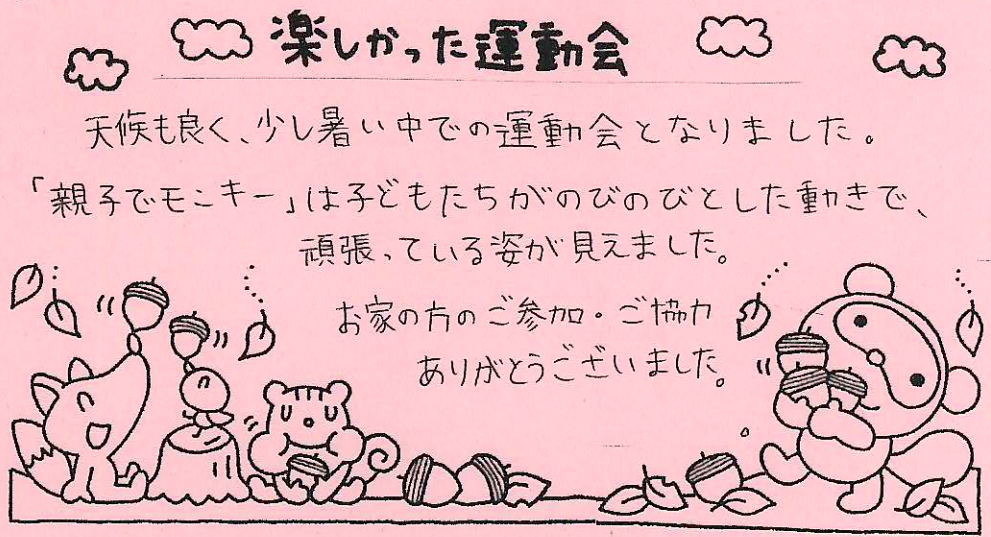 楽しかった運動会
天候も良く、少し暑い中での運動会となりました。
「親子でモンキー」は子どもたちがのびのびとした動きで、
頑張っている姿が見えました。
お家の方のご参加・ご協力
ありがとうございました。